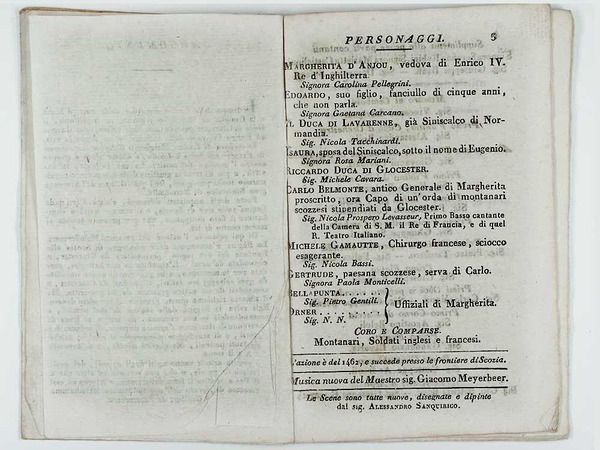 PERSONAGGI. 5
MARGHERITA D'ANJOU, vedova di Enrico IV.
Re d'Inghilterra
Signora Carolina Pellegrini.
EDOARDO, suo figlio, fanciullo di cinque anni,
che non parla.
Signora Gaetana Carcano.
IL DUCA DI LAVARENNE, già Siniscalco di Nor-
mandia.
Sig. Nicola Tacchinardi.
ISAURA, sposa del Siniscalco, sotto il nome di Eugenio.
Signora Rosa Mariani.
RICCARDO DUCA DI GLOCESTER.
Sig. Michele Cavara.
CARLO BELMONTE, antico Generale di Margherita
proscritto, ora Capo di un'orda di montanari
scozzesi stipendiati da Glocester.
Sig. Nicola Prospero Levasseur, Primo Basso cantante
della Camera di S. M. il Re di Francia, e di quel
R. Teatro Italiano.
MICHELE GAMAUTTE, Chirurgo francese, sciocco
esagerante.
Sig. Nicola Bassi.
GERTRUDE, paesana scozzese, serva di Carlo.
Signora Paola Monticelli.
BELLAPUNTA......
Sig. Pietro Gentili.
ORNER..........
Sig. N. N.
Uffiziali di Margherita.
CORO E COMPARSE.
Montanari, Soldati inglesi e francesi.
L'azione è del 1462, e succede presso le frontiere di Scozia.
Musica nuova del Maestro sig. Giacomo Meyerbeer.
Le Scene sono tutte nuove, disegnate e dipinte
dal sig. ALESSANDRO SANQUIRICO.